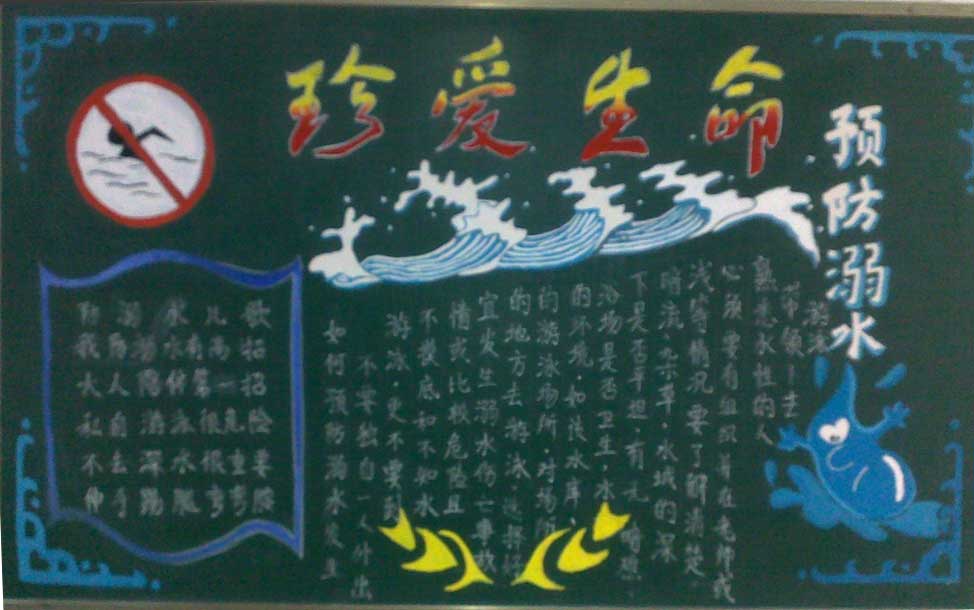 珍爱生命
预防溺水
防溺水儿歌
我防溺水有高招
大人陪伴第一招
私自游泳很危险
不去深水很重要
伸手踢腿弯弯腰
如何预防溺水发生
不要独自一人外出
游泳，更不要到
不摸底和不知水
情或比较危险且
宜发生溺水伤亡事故
的地方去游泳。选择好
的游泳场所，对场所
的环境，如该水库、
浴场是否卫生，水
下是否平坦，有无暗礁、
暗流、杂草，水域的深
浅等情况要了解清楚。
必须要有组织并在老师或
熟悉水性的人
带领下去
游泳